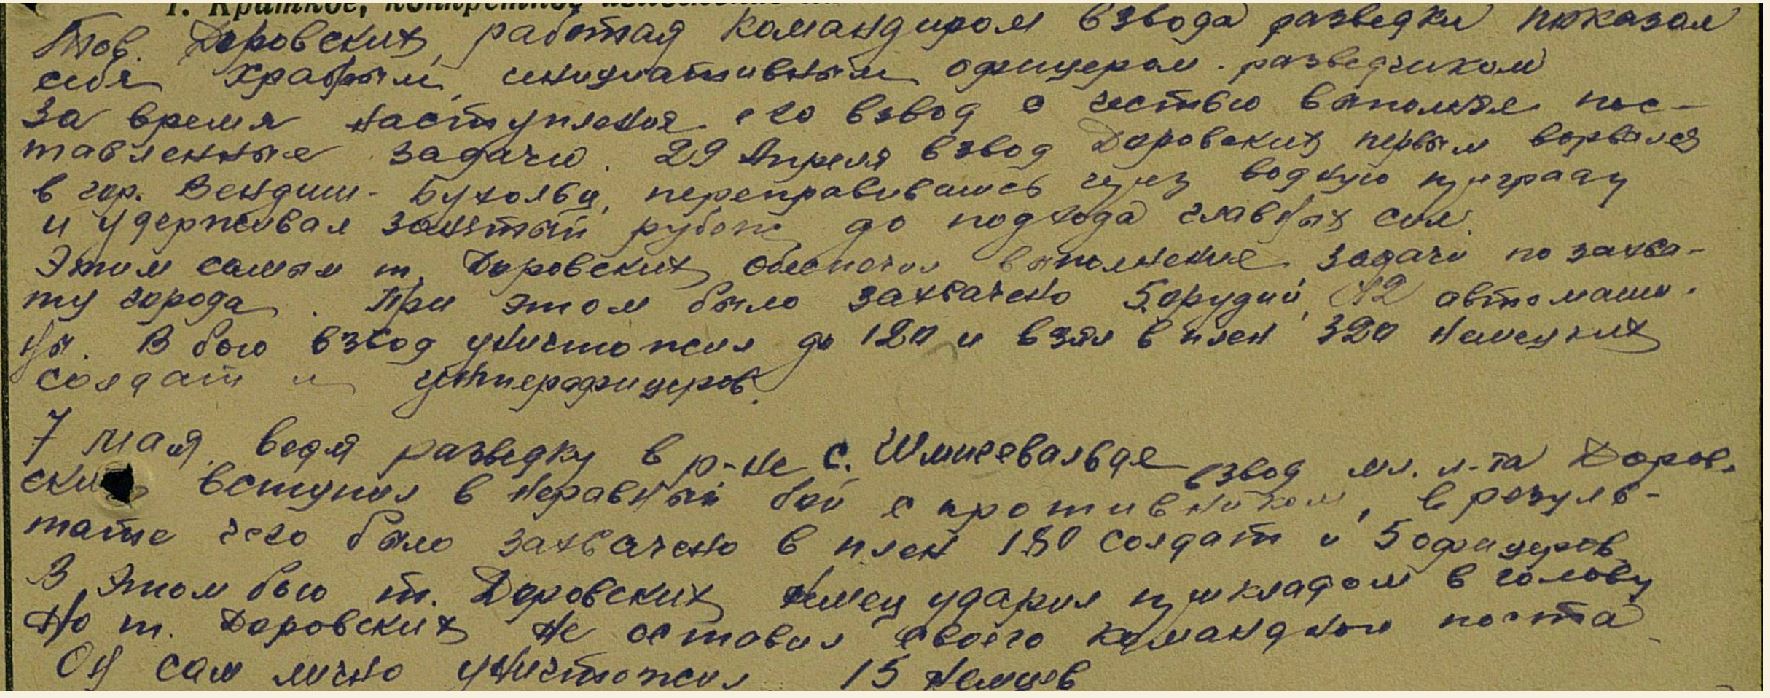 1. Краткое, конкретное
Тов. Доровских, работая командиром взвода разведки показал
себя храбрым, инициативным офицером-разведчиком
За время наступления его взвод с честью выполнял пос-
тавленные задачи. 29 Апреля взвод Доровских первым ворвался
в гор. Вендиш-Бухольц, переправившись через водную преграду
и удерживал занятый рубеж до подхода главных сил.
Этим самым т. Доровских обеспечил выполнение задачи по захва-
ту города. При этом было захвачено 5 орудий, 12 автомаши-
ны. В бою взвод уничтожил до 120 и взял в плен 320 немецких
солдат и унтерофицеров.
7 мая, ведя разведку в р-не с. Шмисевальде взвод мл. л-та Доров-
ских вступил в неравный бой с противником, в резуль-
тате чего было захвачено в плен 180 солдат и 5 офицеров
В этом бою т. Доровских немец ударил прикладом в голову
Но т. Доровских не оставил своего командного поста
Он сам лично уничтожил 15 немцев